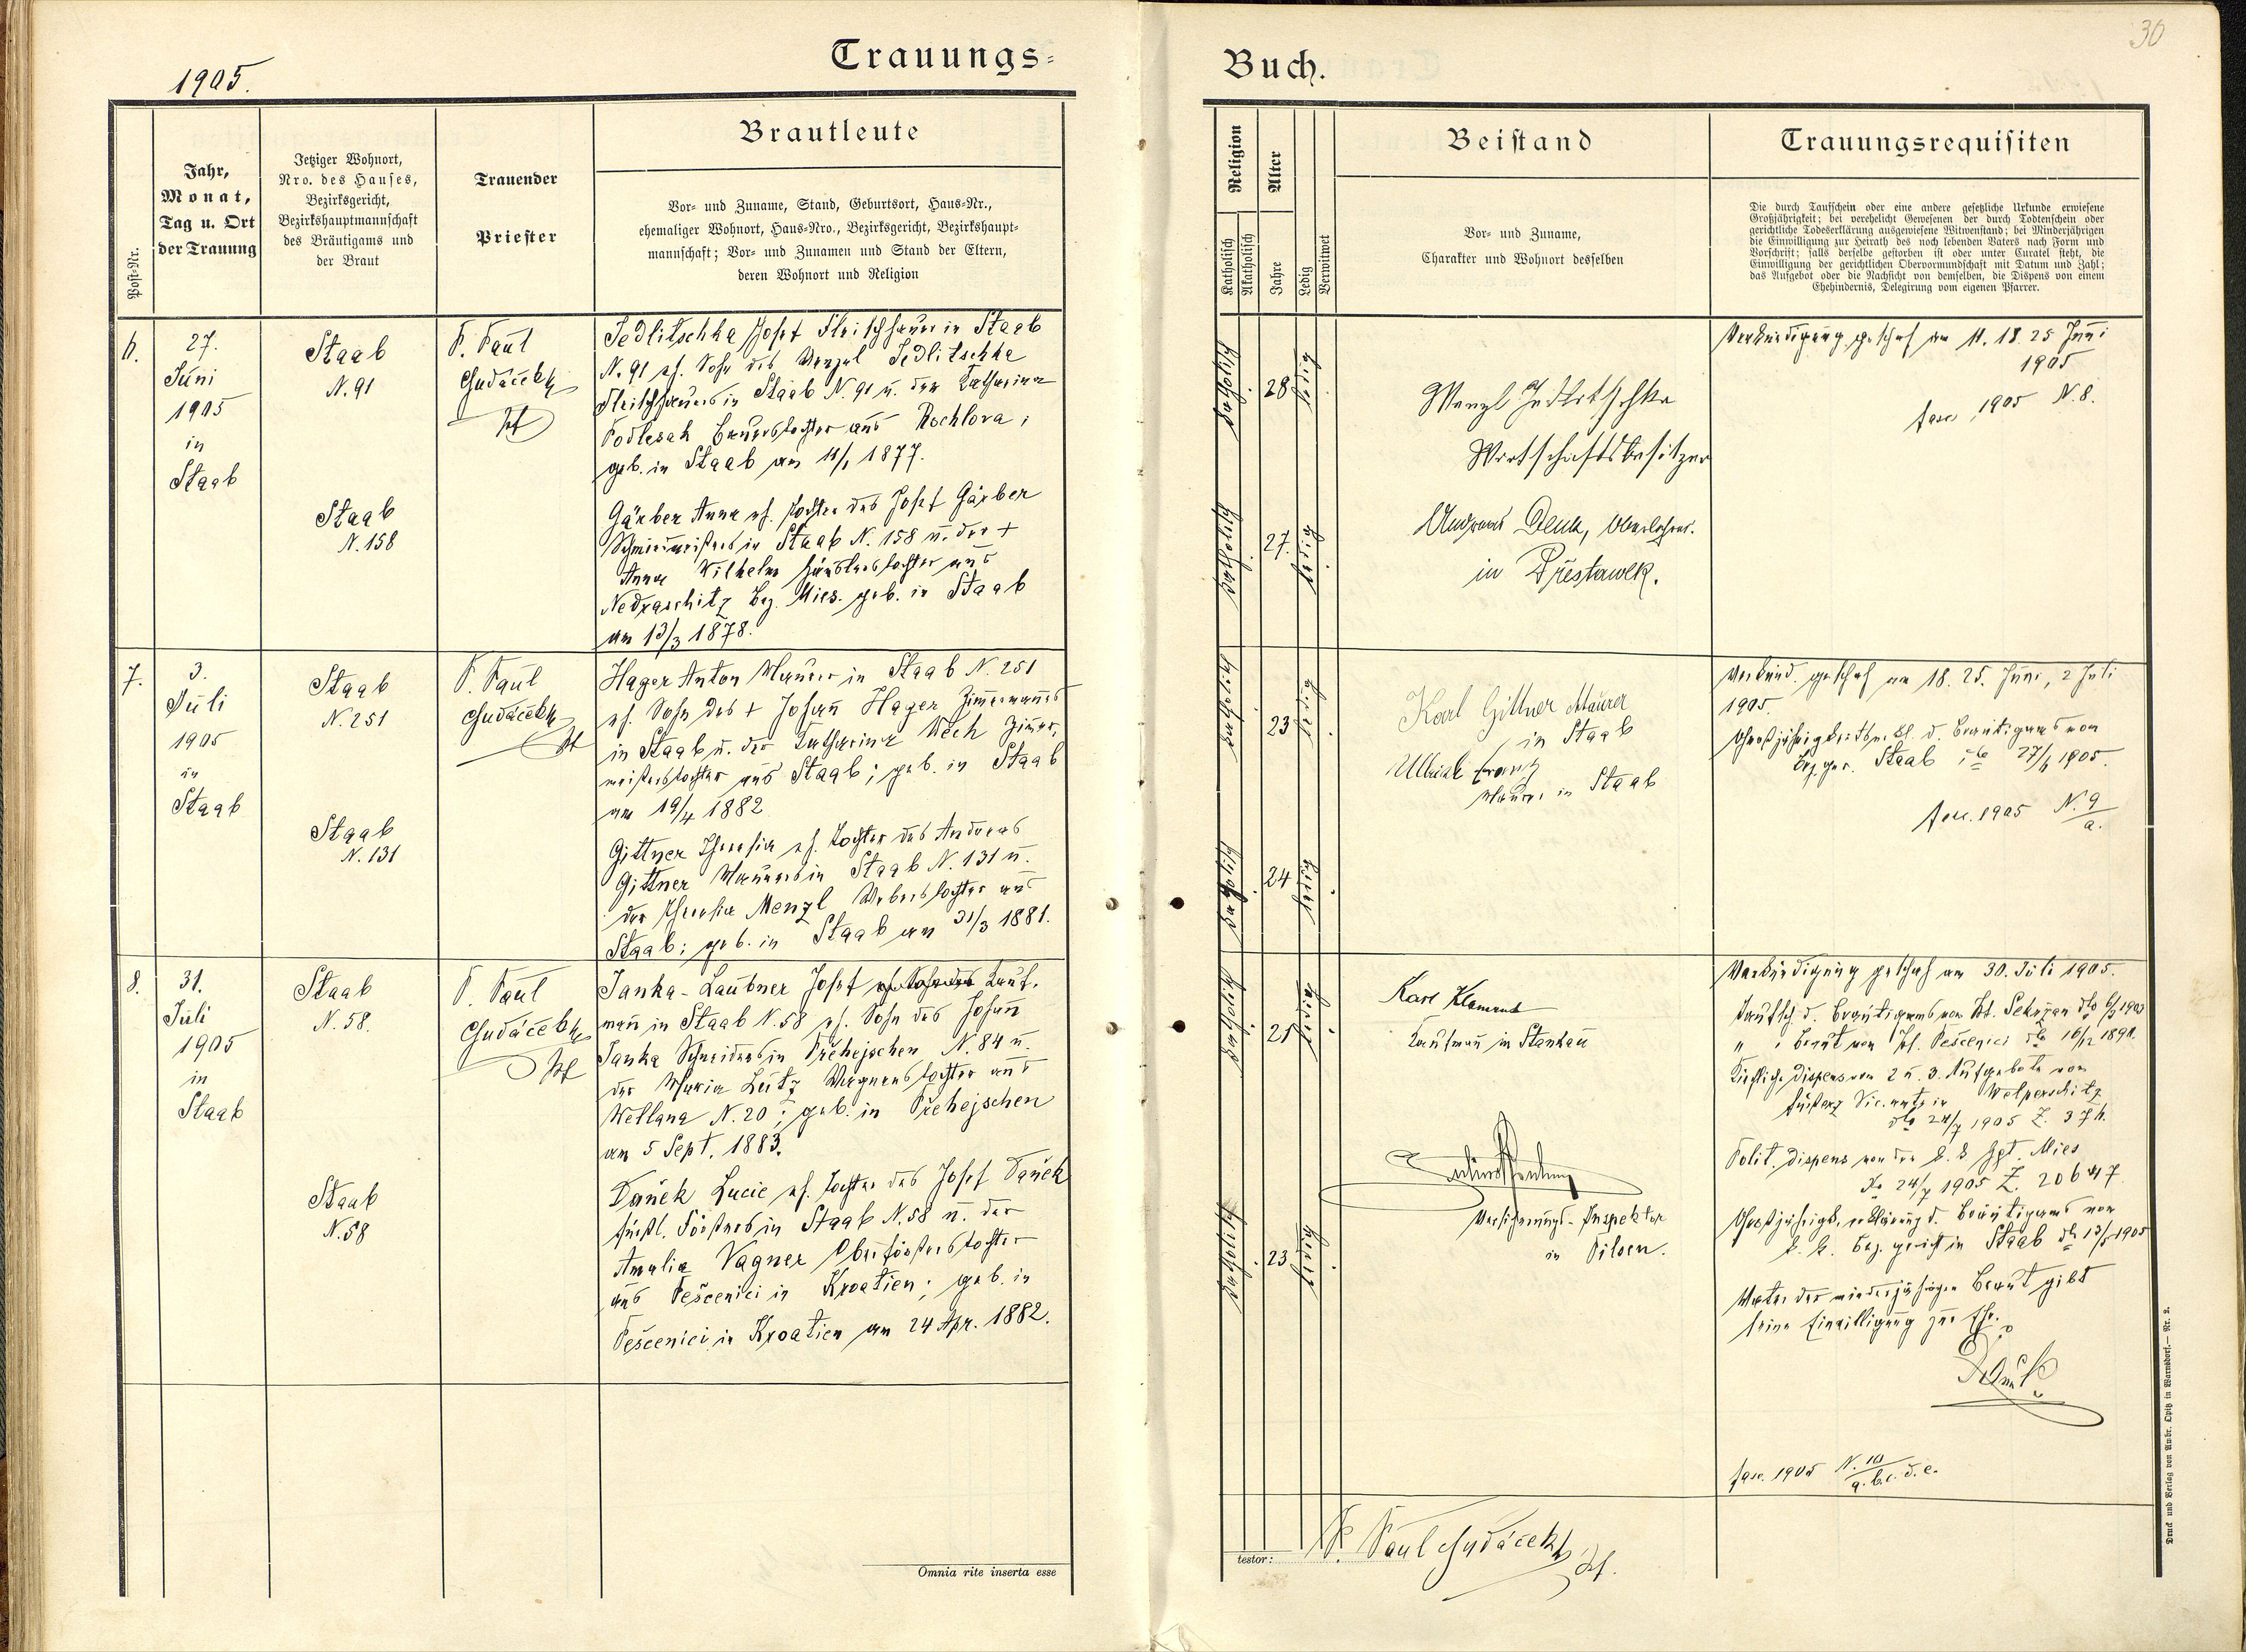 1905.
Trauungs=
Post-Nr.
Jahr,
Monat,
Tag u. Ort
der Trauung
Jetziger Wohnort,
Nro. des Hauses,
Bezirksgericht,
Bezirkshauptmannschaft
des Bräutigams und
der Braut
Trauender
Priester
Brautleute
Vor- und Zuname, Stand, Geburtsort, Haus-Nr.,
ehemaliger Wohnort, Haus-Nro., Bezirksgericht, Bezirkshaupt-
mannschaft; Vor- und Zunamen und Stand der Eltern,
deren Wohnort und Religion
6.
27.
Juni
1905
in
Staab
Staab
N. 91
Staab
N. 158
P. Paul
Chudáček
Jedlitschka Josef Fleischhauer in Staab
N. 91 eh. Sohn des Wenzel Jedlitschka
Fleischhauers in Staab N. 91 u. der Katharina
Podlesak Bauerstochter aus Rochlova;
geb. in Staab am 1877.
Gärber Anna eh. Tochter des Josef Gärber
Schmiedmeisters in Staab N. 158 u. der +
Anna Wilhelm Häuslerstochter aus
Nedraschitz Bez. Mies. geb. in Staab
am 13/3 1878.
7.
3.
Juli
1905
in
Staab
Staab
N. 251
Staab
N. 131
P. Paul
Chudáček
Hager Anton Maurer in Staab N. 251
eh. Sohn des + Johann Hager Zimmermannes
in Staab u. der Katharina Wech Zimer-
meisterstochter aus Staab; geb. in Staab
am 19/4 1882
Gittner Theresia eh. Tochter des Andreas
Gittner Maurers in Staab N. 131 u.
der Theresia Menzl Weberstochter aus
Staab; geb. in Staab am 31/3 1881.
8.
31.
Juli
1905
in
Staab
Staab
N. 58.
Staab
N. 58
P. Paul
Chudáček
Janka-Laubner Josef Kauf-
mann in Staab N. 58 eh. Sohn des Johann
Janka Schneiders in Přehejschen N. 84 u.
der Maria Leitz Wagnerstochter aus
Wellana N. 20; geb. in Přehejschen
am 5 Sept. 1883.
Daněk Lucie eh. Tochter des Josef Daněk
fürstl. Försters in Staab N. 58 u. der
Amalia Vagner Oberförsterstochter
aus Peščenici in Kroatien; geb. in
Peščenici in Kroatien am 24 Apr. 1882.
Omnia rite inserta esse
30
Buch.
Religion
Katholisch
Akatholisch
Alter
Jahre
Ledig
Verwitwet
Beistand
Vor- und Zuname,
Charakter und Wohnort desselben
Trauungsrequisiten
Die durch Taufschein oder eine andere gesetzliche Urkunde erwiesene
Großjährigkeit; bei verehelicht Gewesenen der durch Todtenschein oder
gerichtliche Todeserklärung ausgewiesene Witwenstand; bei Minderjährigen
die Einwilligung zur Heirath des noch lebenden Vaters nach Form und
Vorschrift; falls derselbe gestorben ist oder unter Curatel steht, die
Einwilligung der gerichtlichen Obervormundschaft mit Datum und Zahl;
das Aufgebot oder die Nachsicht von demselben, die Dispens von einem
Ehehindernis, Delegirung vom eigenen Pfarrer.
katholisch
28
ledig
katholisch
27
ledig
Wenzl Jedlitschka
Wirtschaftsbesitzer
Andreas Denk, Oberlehrer
in Přestawlk.
Verkündigung geschah am 11. 18. 25 Juni
1905
fasc 1905 N. 8.
katholisch
23
ledig
katholisch
24
ledig
Karl Gittner Maurer
in Staab
Ulbrich Franz
Maurer in Staab
Verkünd. geschah am 18. 25. Juni, 2 Juli
1905.
Großjährigkeits d. Bräutigams von
Bez. ger. Staab 1905.
fasc. 1905 N. 9/a.
katholisch
21
ledig
katholisch
23
ledig
Karl Klement
Kaufmann in Stankau
Versicherungs-Inspektor
in Pilsen.
Verkündigung geschah am 30. Juli 1905.
Taufsch. d. Bräutigams von
" " Braut von Peščenici
Kirchliche Dispens von 2 u. 3. Aufgebote vom
Vic. amte in Welperschitz
24/7 1905 Z. 376.
Polit. Dispens von der Mies
24/7 1905 Z. 20647
Großjährigk. erklärung d. Bräutigams vom
k. k. Bez. gericht in Staab 1905
Vater der minderjährigen Braut gibt
seine Einwilligung zur Ehe.
Daněk
fasc. 1905 N. 10/a. b. c. d. e.
testor:
P. Paul Chudáček
Druck und Verlag von Ambr. Opitz in Warnsdorf. — Nr. 2.